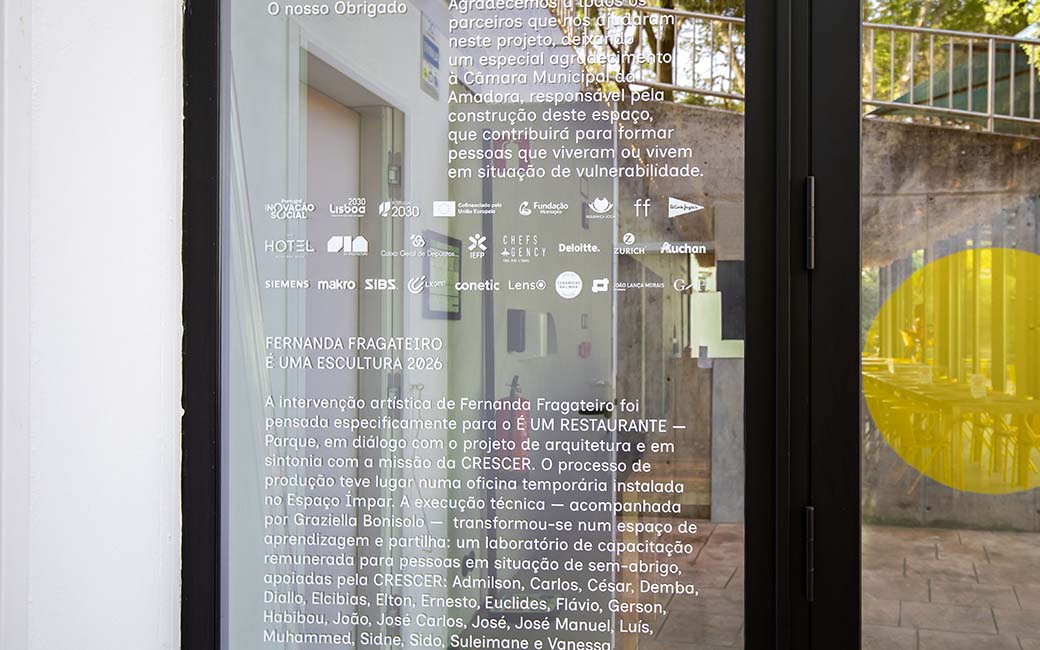 O nosso Obrigado
Agradecemos a todos os
parceiros que nos ajudaram
neste projeto, deixando
um especial agradecimento
à Câmara Municipal da
Amadora, responsável pela
construção deste espaço,
que contribuirá para formar
pessoas que viveram ou vivem
em situação de vulnerabilidade.
Portugal INOVAÇÃO SOCIAL
2030 LISBOA
PORTUGAL 2030
Cofinanciado pela União Europeia
Fundação Montepio
SEGURANÇA SOCIAL
ff
El Corte Inglés
HOTEL
Caixa Geral de Depósitos
IEFP
CHEFS AGENCY
Deloitte.
ZURICH
Auchan
SIEMENS
makro
SIBS
conetic
Lens
JOÃO LANÇA MORAIS
FERNANDA FRAGATEIRO
É UMA ESCULTURA 2026
A intervenção artística de Fernanda Fragateiro foi
pensada especificamente para o É UM RESTAURANTE —
Parque, em diálogo com o projeto de arquitetura e em
sintonia com a missão da CRESCER. O processo de
produção teve lugar numa oficina temporária instalada
no Espaço Ímpar. A execução técnica — acompanhada
por Graziella Bonisolo — transformou-se num espaço de
aprendizagem e partilha: um laboratório de capacitação
remunerada para pessoas em situação de sem-abrigo,
apoiadas pela CRESCER: Admilson, Carlos, César, Demba,
Diallo, Elcibias, Elton, Ernesto, Euclides, Flávio, Gerson,
Habibou, João, José Carlos, José, José Manuel, Luís,
Muhammed, Sidne, Sido, Suleimane e Vanessa